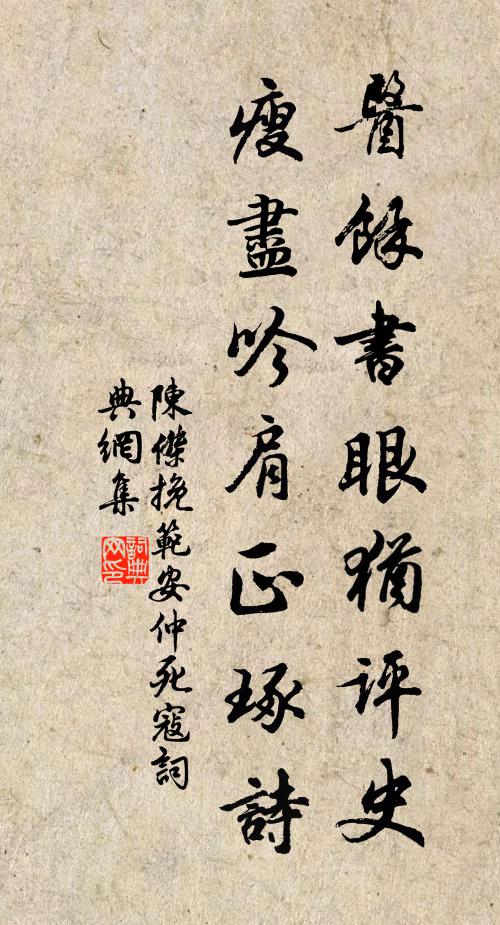 醫餘書眼猶評史
瘦盡吟肩正琢詩
陳傑挽範安仲死寇詞
典網集
詞典
网印